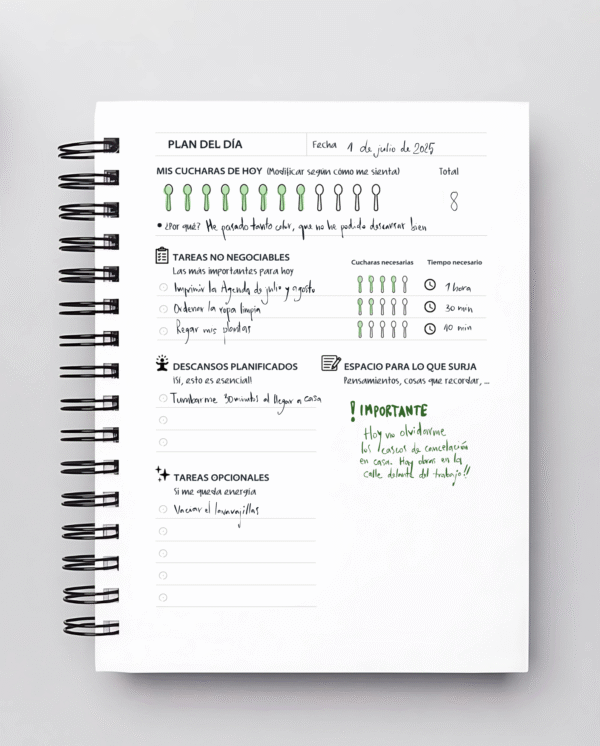 PLAN DEL DÍA
Fecha 1 de julio de 2025
MIS CUCHARAS DE HOY (Modificar según cómo me sienta) Total
8
¿Por qué? He pasado tanto calor, que no he podido descansar bien
TAREAS NO NEGOCIABLES
Las más importantes para hoy
Cucharas necesarias Tiempo necesario
Imprimir la Agenda de julio y agosto 1 hora
Ordenar la ropa limpia 30 min
Regar mis plantas 10 min
DESCANSOS PLANIFICADOS
¡Sí, esto es esencial!
Tumbarme 30 minutos al llegar a casa
ESPACIO PARA LO QUE SURJA
Pensamientos, cosas que recordar, ...
! IMPORTANTE
Hoy no olvidarme
los cascos de cancelación
en casa. Hay obras en la
calle delante del trabajo!!
TAREAS OPCIONALES
Si me queda energía
Vaciar el lavavajillas